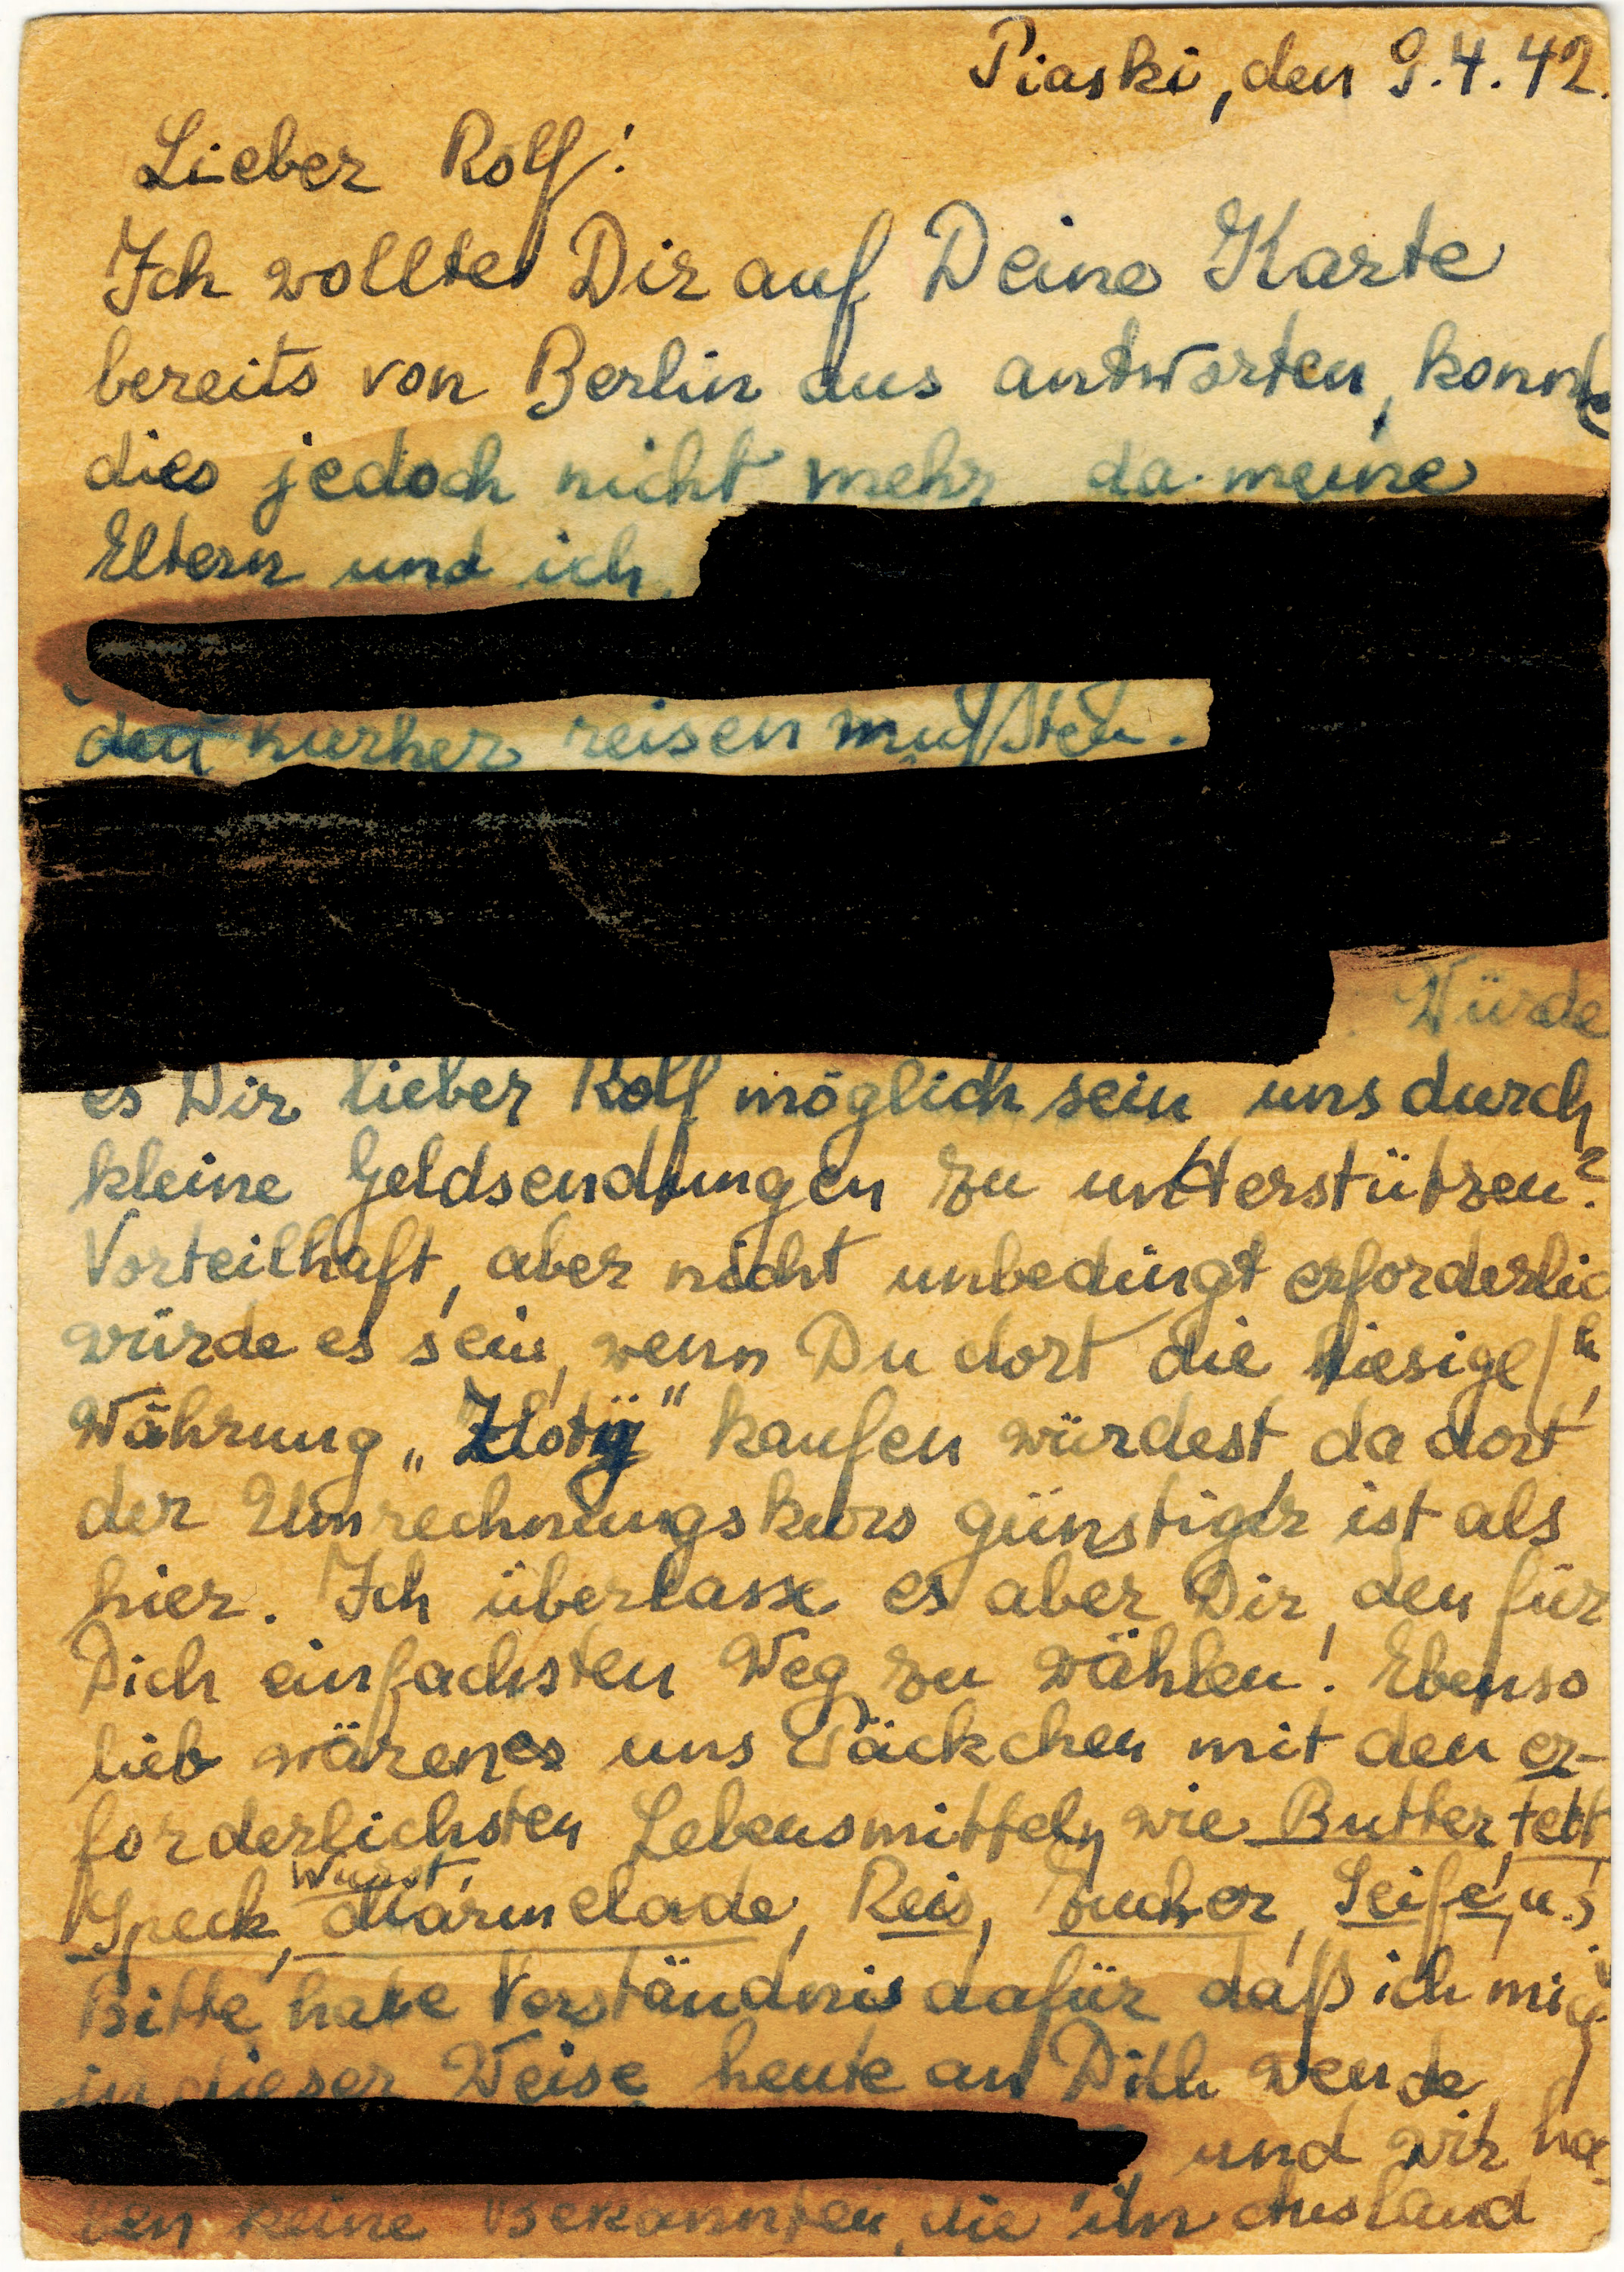 Piaski, den 9.4.42.
Lieber Rolf!
Ich wollte Dir auf Deine Karte
bereits von Berlin aus antworten, konnte
dies jedoch nicht mehr, da meine
Eltern und ich
reisen mußten.
Würde
es Dir lieber Rolf möglich sein uns durch
kleine Geldsendungen zu unterstützen?
Vorteilhaft, aber nicht unbedingt erforderlich,
würde es sein, wenn Du dort die hiesige
Währung „Zloty" kaufen würdest, da dort
der Umrechnungskurs günstiger ist als
hier. Ich überlasse es aber Dir, den für
Dich einfachsten Weg zu wählen! Ebenso
lieb wären es uns Päckchen mit den er-
forderlichsten Lebensmitteln wie Butter, Fett,
Wurst,
Speck, Marmelade, Reis, Zucker, Seife, u.
Bitte habe Verständnis dafür daß ich mich
in dieser Weise heute an Dich wende,
und wir ha-
ben keine Bekannten, die im Ausland